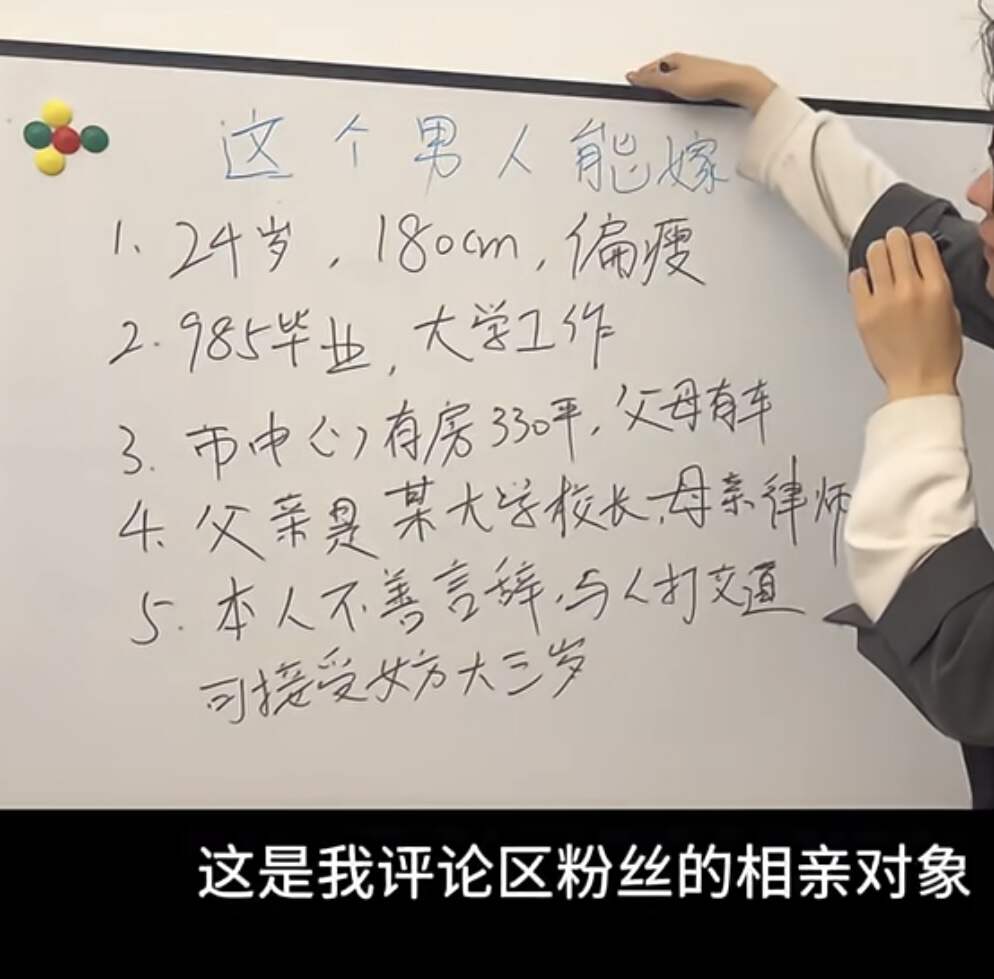 这个男人能嫁
1. 24岁，180cm，偏瘦
2. 985毕业，大学工作
3. 市中心有房330平，父母有车
4. 父亲是某大学校长，母亲律师
5. 本人不善言辞，与人打交道
可接受女方大三岁
这是我评论区粉丝的相亲对象